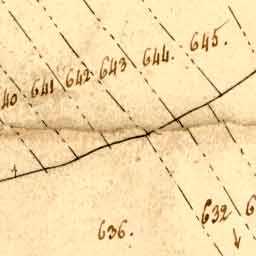 641 642 643 644. 645.
632
636.